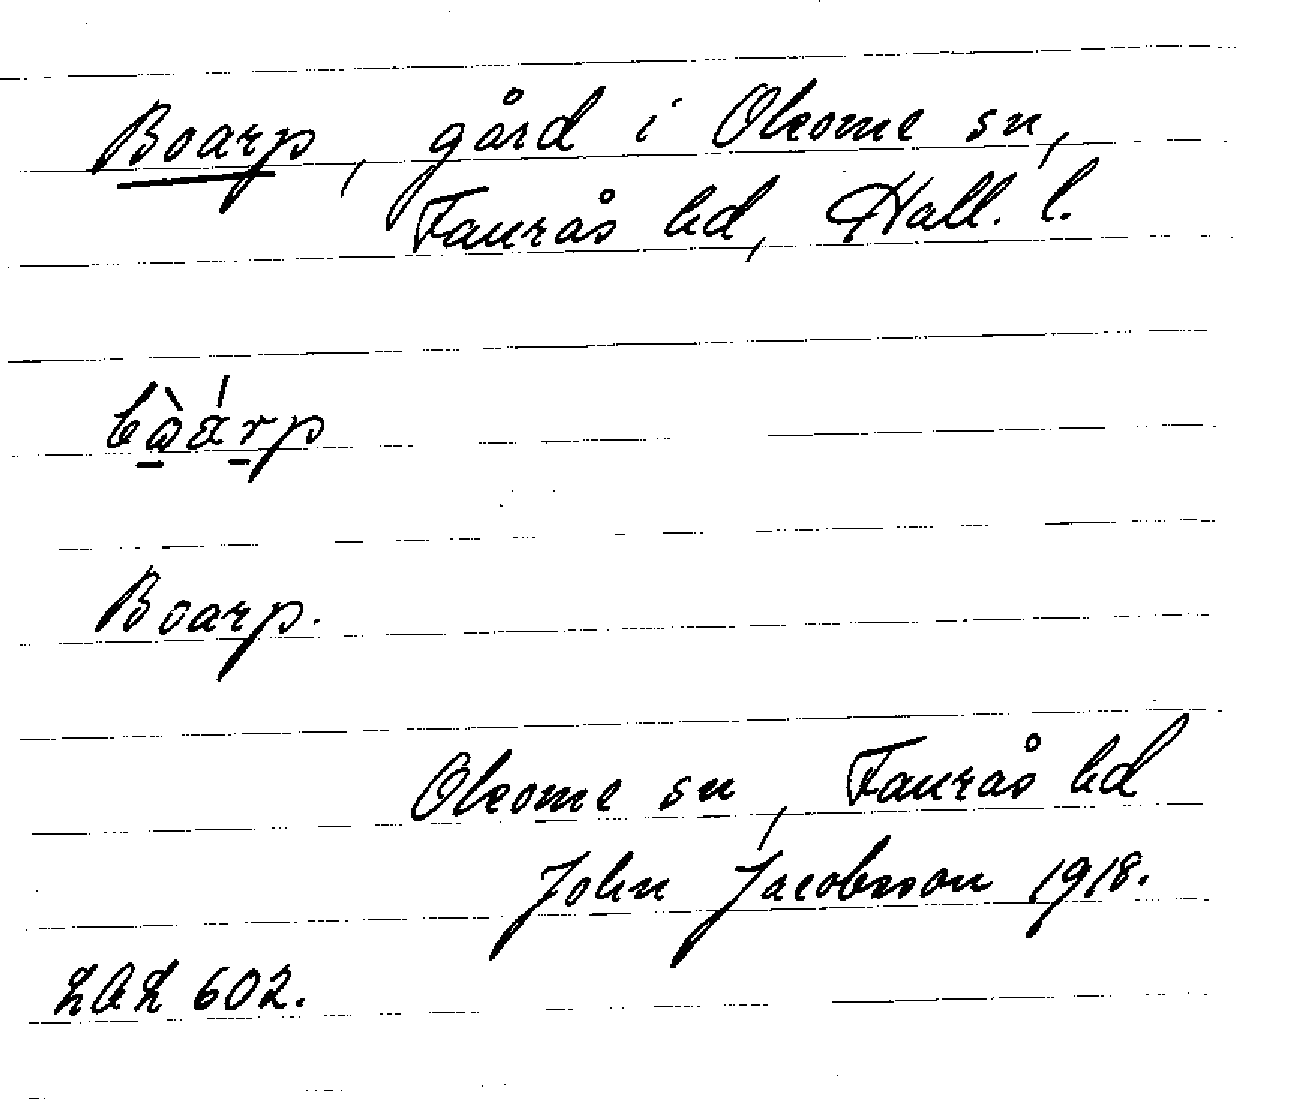 Boarp, gård i Okome sn,
Faurås hd, Hall. l.
Boarp.
Okome sn, Faurås hd
John Jacobsson 1918.
LAL 602.